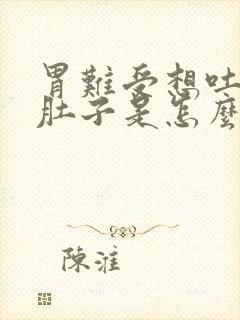 胃難受想吐
肚子是怎麼
陳淮